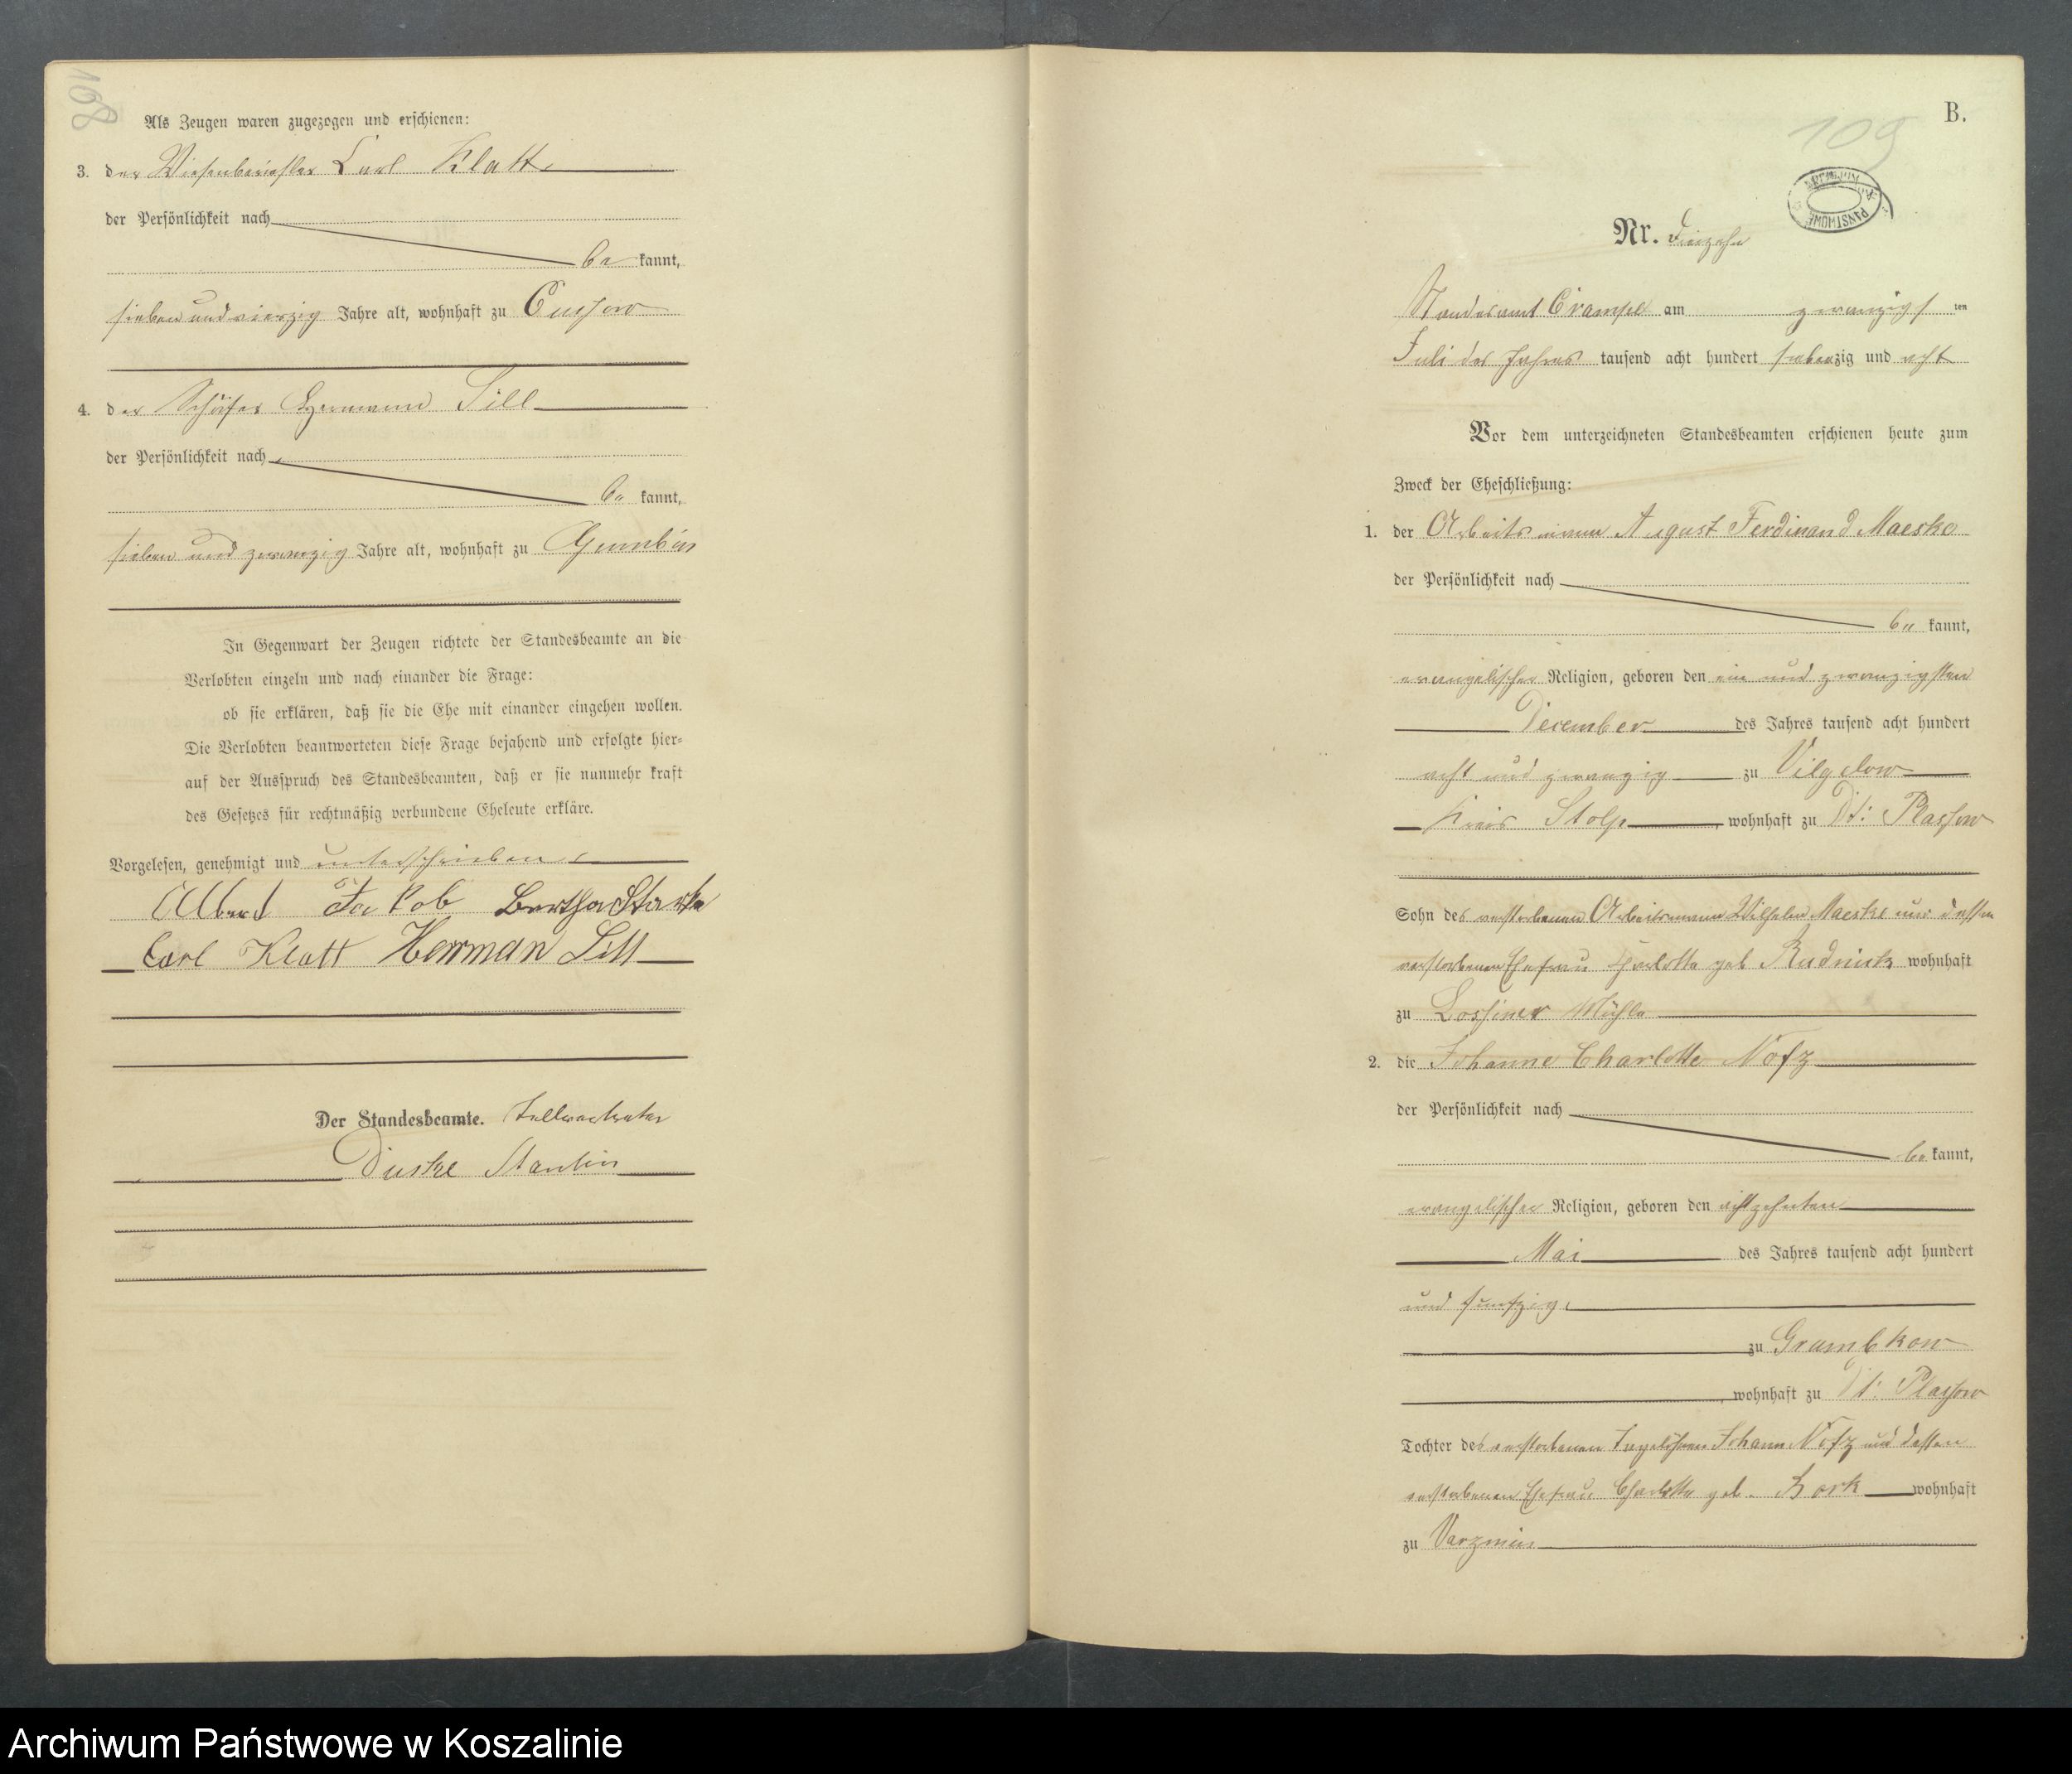 108
Als Zeugen waren zugezogen und erschienen:
3. der Wiesenbauer Carl Klatt
der Persönlichkeit nach
be kannt,
sieben und vierzig Jahre alt, wohnhaft zu Cussow
4. der Schäfer Hermann Sill
der Persönlichkeit nach
be kannt,
sieben und zwanzig Jahre alt, wohnhaft zu Gumbin
In Gegenwart der Zeugen richtete der Standesbeamte an die
Verlobten einzeln und nach einander die Frage:
ob sie erklären, daß sie die Ehe mit einander eingehen wollen.
Die Verlobten beantworteten diese Frage bejahend und erfolgte hier-
auf der Ausspruch des Standesbeamten, daß er sie nunmehr kraft
des Gesetzes für rechtmäßig verbundene Eheleute erkläre.
Vorgelesen, genehmigt und unterschrieben
Albert Jakob Bertha Starke
Carl Klatt Herrman Sill
Der Standesbeamte. Stellvertreter
Duske Stantin
B.
109
ARCHIWUM PAŃSTWOWE
Nr. Dreizehn
Standesamt Crampe am zwanzigs ten
Juli des Jahres tausend acht hundert siebenzig und acht
Vor dem unterzeichneten Standesbeamten erschienen heute zum
Zweck der Eheschließung:
1. der Arbeitsmann August Ferdinand Maeske
der Persönlichkeit nach
be kannt,
evangelischer Religion, geboren den ein und zwanzigsten
December des Jahres tausend acht hundert
acht und zwanzig zu Vilgelow
Kreis Stolp, wohnhaft zu Dt: Plassow
Sohn des verstorbenen Arbeitsmann Wilhelm Maeske und dessen
verstorbenen Ehefrau Charlotte geb Rudnick wohnhaft
zu Lossiner Mühle
2. die Johanne Charlotte Nötz
der Persönlichkeit nach
be kannt,
evangelischer Religion, geboren den achtzehnten
Mai des Jahres tausend acht hundert
und funfzig
zu Grambkow
, wohnhaft zu Dt: Plassow
Tochter des verstorbenen Tagelöhner Johann Nötz und dessen
verstorbenen Ehefrau Charlotte geb. Bork wohnhaft
zu Varzmin
Archiwum Państwowe w Koszalinie